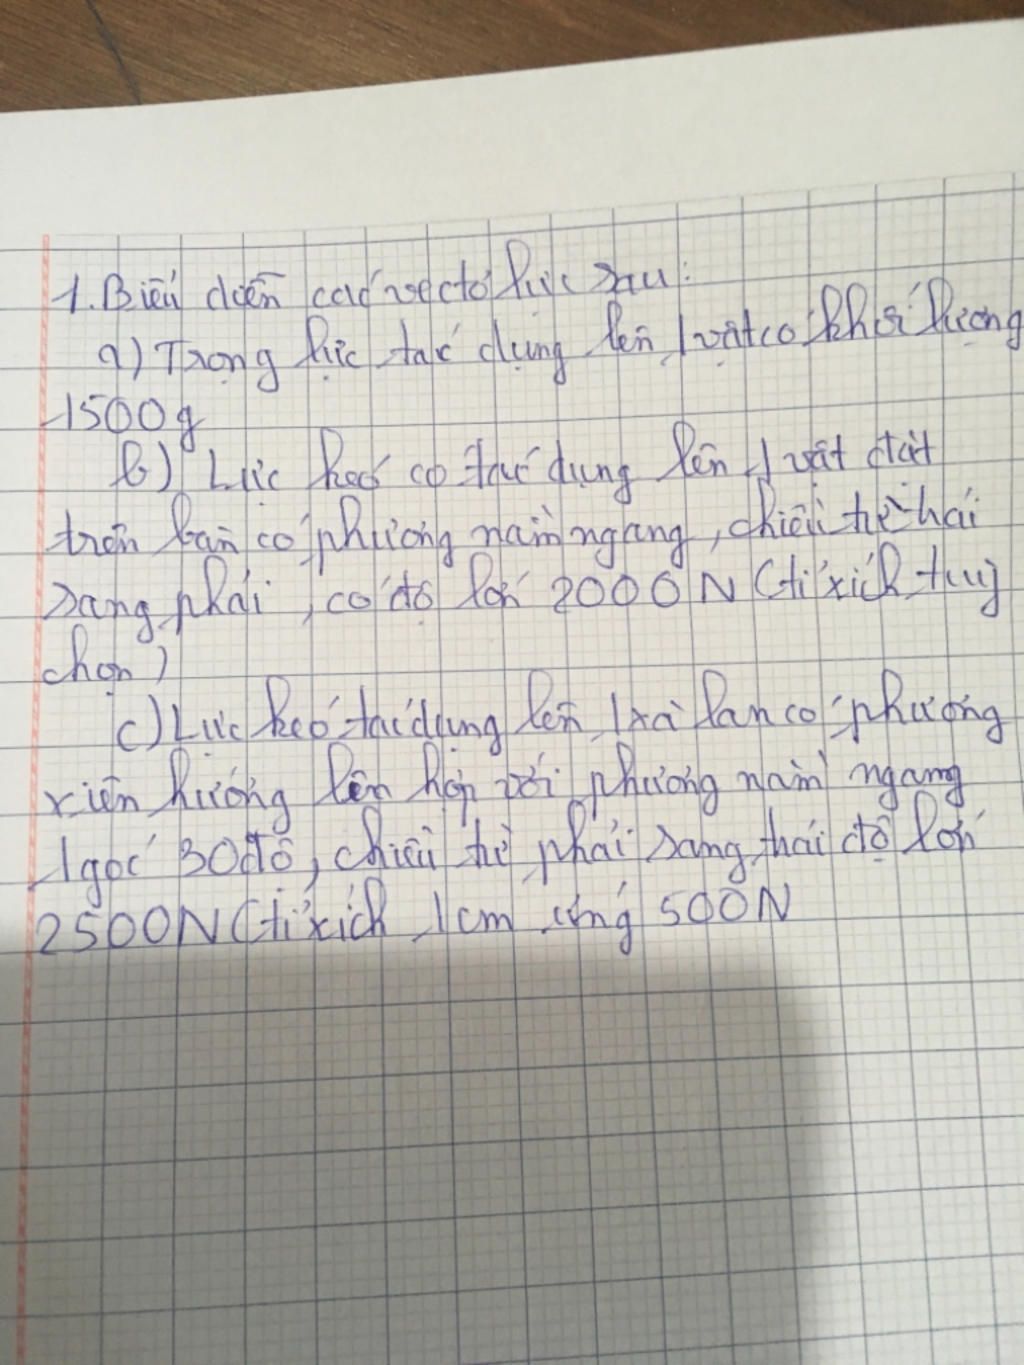 1. Biểu diễn các vectơ lực sau:
a) Trọng lực tác dụng lên 1 vật có khối lượng
1500g
b) Lực kéo có tác dụng lên 1 vật đặt
trên bàn có phương nằm ngang, chiều từ trái
sang phải, có độ lớn 2000N (tỉ xích tuỳ
chọn)
c) Lực kéo tác dụng lên 1 xà lan có phương
xiên hướng lên hợp với phương nằm ngang
1 góc 30 độ, chiều từ phải sang trái độ lớn
2500N (tỉ xích 1cm ứng 500N